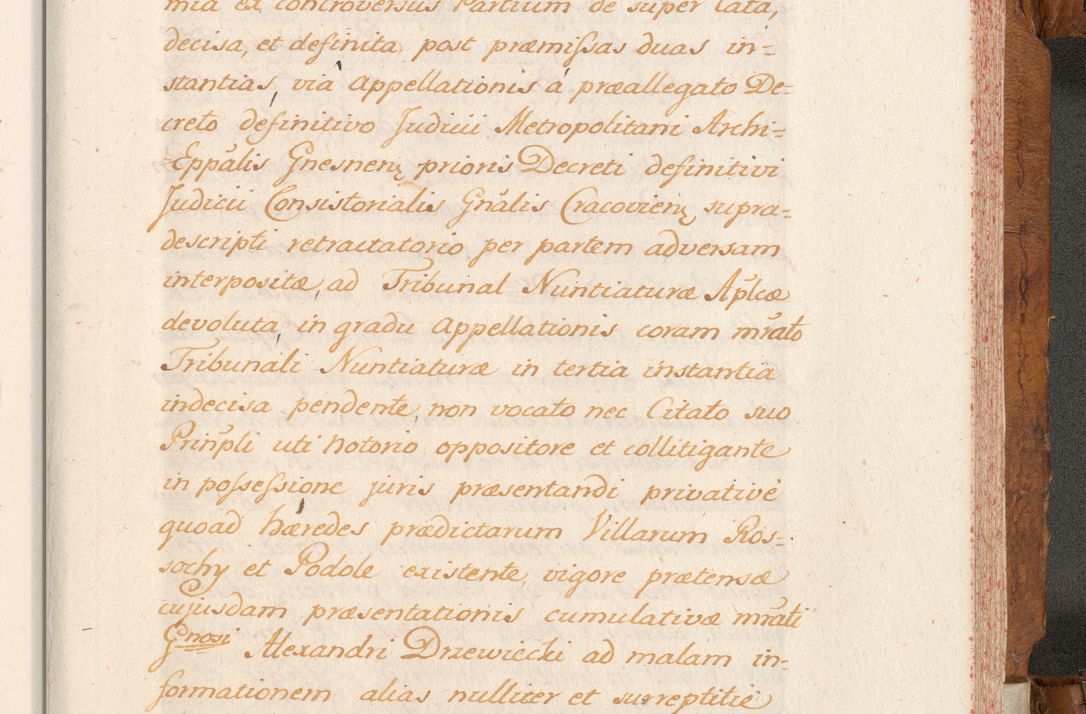 mia ex controversus Partium de super lata,
decisa, et definita post præmissas duas in=
stantias, via Appellationis á præallegato De=
creto definitivo Judicii Metropolitani Archi=
=Eppãlis Gnesnen, prioris Decreti definitivi
Judicii Consistorialis Gnãlis Cracovien, supra=
descripti retractatorio per partem adversam
interpositæ, ad Tribunal Nuntiaturæ Aplcæ
devoluta, in gradu Appellationis coram mrãto
Tribunali Nuntiaturæ in tertia instantia
indecisa pendente, non vocato nec Citato suo
Prinpli uti Notorio oppositore et collitigante
in possessione juris præsentandi privativè
quoad hæredes prædictarum Villarum Ros=
sochy et Podole existente, vigore prætensæ
cujusdam præsentationis cumulativæ mrãti
Gnosi Alexandri Drzewiecki ad malam in=
formationem alias nulliter et surreptitiè